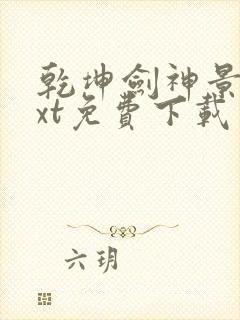 乾坤劍神景
xt免費下載
六玥